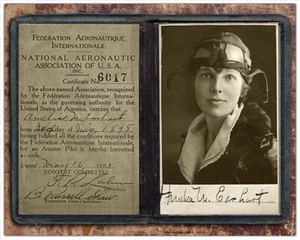 FÉDÉRATION AÉRONAUTIQUE
INTERNATIONALE
NATIONAL AERONAUTIC
ASSOCIATION OF U.S.A.
INC.
Certificate No. 6017
The above named Association, recognized
by the Fédération Aéronautique Interna-
tionale, as the governing authority for the
United States of America, certifies that
Amelia M. Earhart
born 24th day of July, 1898
having fulfilled all the conditions required by
the Fédération Aéronautique Internationale,
for an Aviator Pilot is hereby licensed
as such.
Dated May 16, 1923
CONTEST COMMITTEE
B. Russell Shaw
Amelia M. Earhart